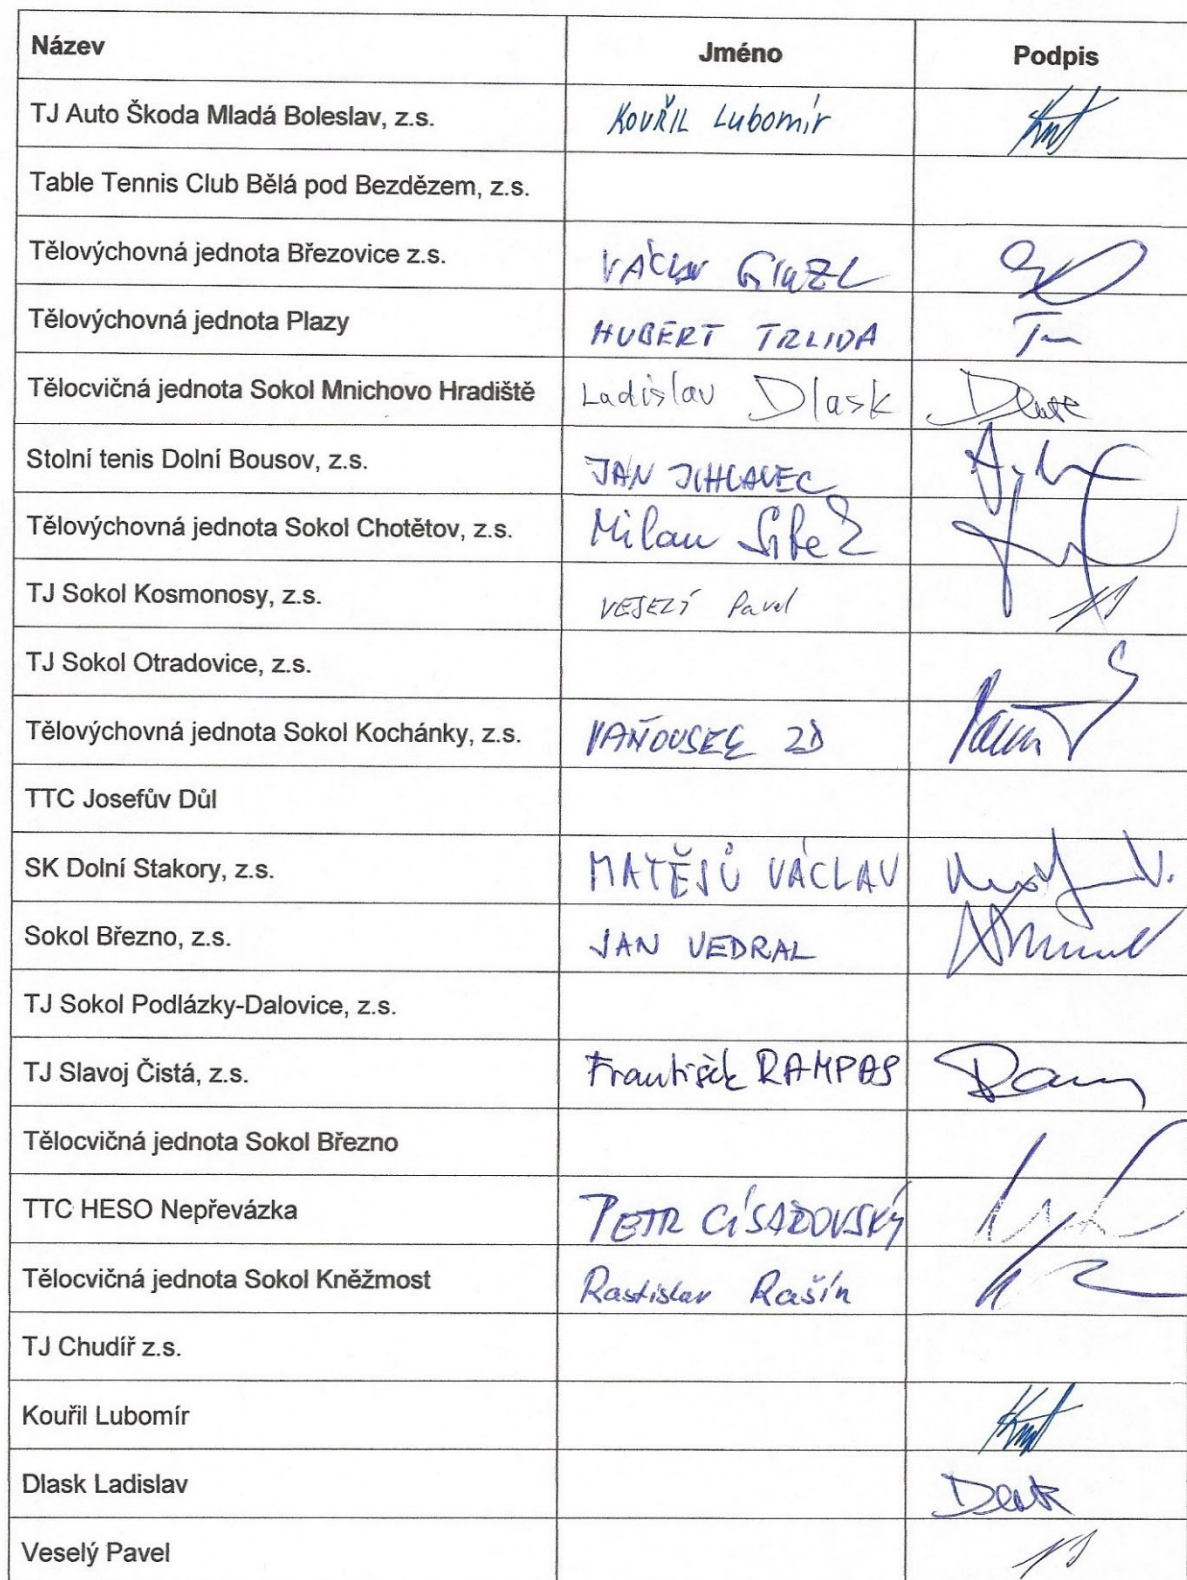 Název Jméno Podpis
TJ Auto Škoda Mladá Boleslav, z.s. KOUŘIL Lubomír
Table Tennis Club Bělá pod Bezdězem, z.s.
Tělovýchovná jednota Březovice z.s. VÁCLAV
Tělovýchovná jednota Plazy HUBERT TRLIDA
Tělocvičná jednota Sokol Mnichovo Hradiště Ladislav Dlask
Stolní tenis Dolní Bousov, z.s. JAN JIHLAVEC
Tělovýchovná jednota Sokol Chotětov, z.s. Milan
TJ Sokol Kosmonosy, z.s. VESELÝ Pavel
TJ Sokol Otradovice, z.s.
Tělovýchovná jednota Sokol Kochánky, z.s. VAŇOUSEK ZD
TTC Josefův Důl
SK Dolní Stakory, z.s. MATĚJŮ VÁCLAV
Sokol Březno, z.s. JAN VEDRAL
TJ Sokol Podlázky-Dalovice, z.s.
TJ Slavoj Čistá, z.s. František RAMPAS
Tělocvičná jednota Sokol Březno
TTC HESO Nepřevázka PETR CÍSAŘOVSKÝ
Tělocvičná jednota Sokol Kněžmost Rastislav Rašín
TJ Chudíř z.s.
Kouřil Lubomír
Dlask Ladislav
Veselý Pavel